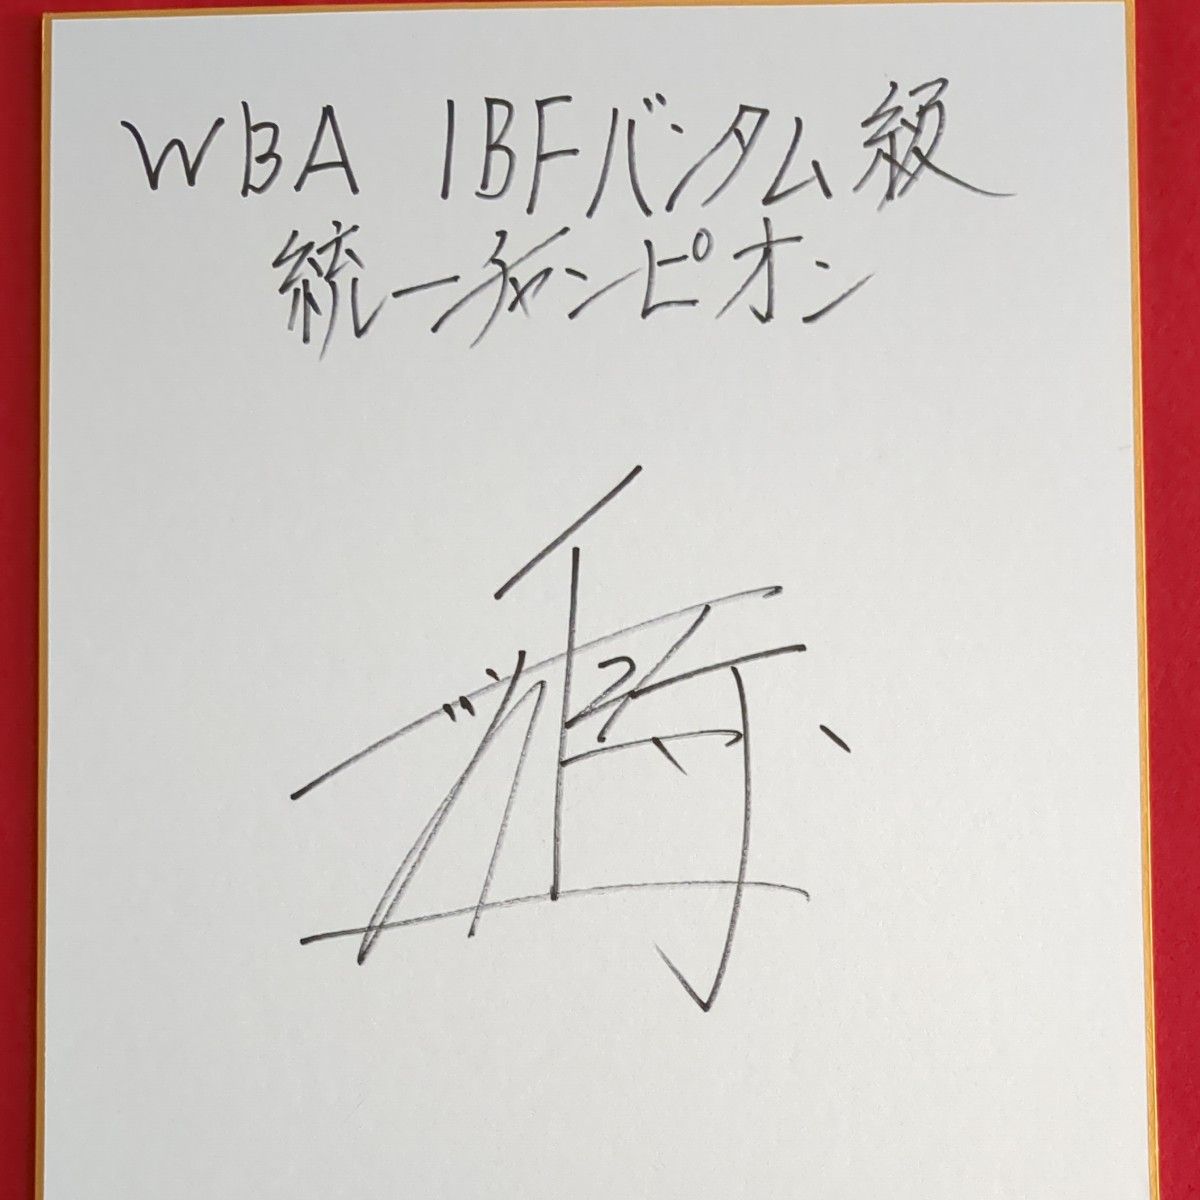 WBA IBFバンタム級
統一チャンピオン